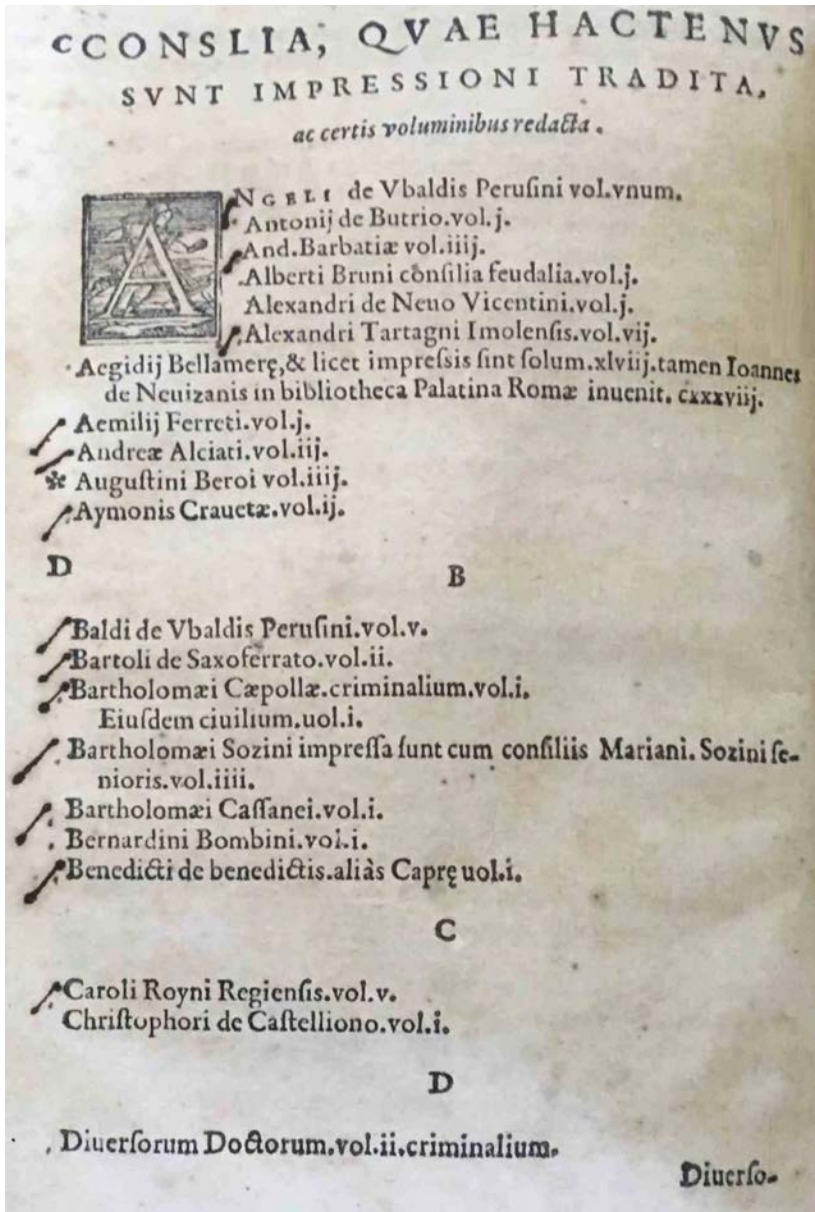 cCONSLIA, QVAE HACTENVS
SVNT IMPRESSIONI TRADITA,
ac certis voluminibus redacta.
ANGELI de Vbaldis Perusini vol.vnum.
Antonij de Butrio.vol.j.
And.Barbatiæ vol.iiij.
Alberti Bruni cõnsilia feudalia.vol.j.
Alexandri de Neuo Vicentini.vol.j.
Alexandri Tartagni Imolensis.vol.vij.
Aegidij Bellamerę,& licet impressis sint solum.xlviij.tamen Ioannes
de Neuizanis in bibliotheca Palatina Romæ inuenit. cxxxviij.
Aemilij Ferreti.vol.j.
Andreæ Alciati.vol.iij.
* Augustini Beroi vol.iiij.
Aymonis Crauetæ.vol.ij.
D
B
Baldi de Vbaldis Perusini.vol.v.
Bartoli de Saxoferrato.vol.ii.
Bartholomæi Cæpollæ.criminalium.vol.i.
Eiusdem ciuilium.uol.i.
Bartholomæi Sozini impressa sunt cum consiliis Mariani. Sozini se-
nioris.vol.iiii.
Bartholomæi Cassanei.vol.i.
Bernardini Bombini.vol.i.
Benedicti de benedictis.aliàs Caprę uol.i.
C
Caroli Royni Regiensis.vol.v.
Christophori de Castelliono.vol.i.
D
Diuersorum Doctorum.vol.ii.criminalium.
Diuerso-